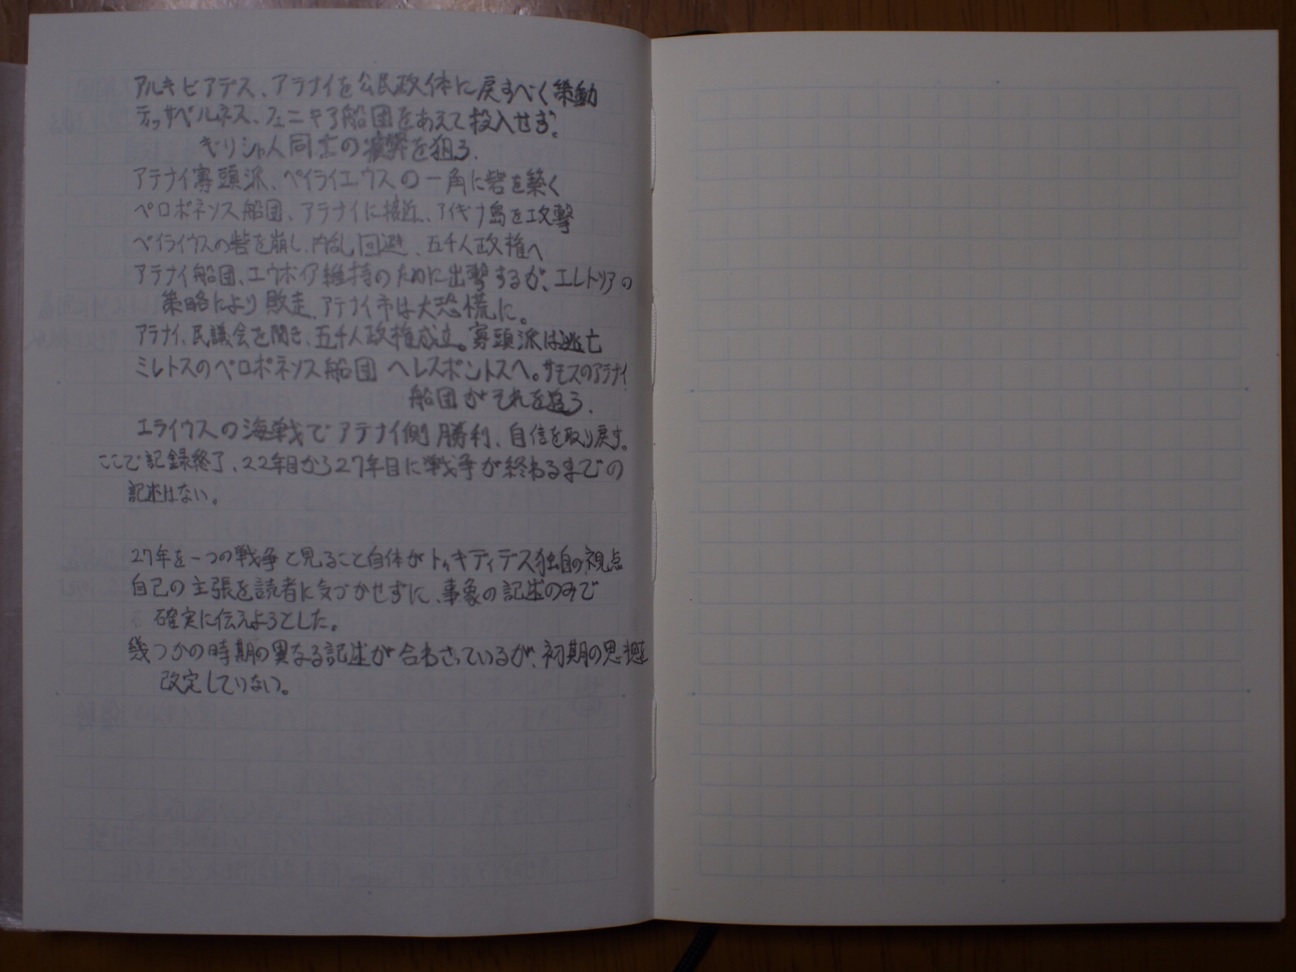 アルキビアデス、アテナイを公民政体に戻すべく策動
ティッサペルネス、フェニキア船団をあえて投入せず。
ギリシャ人同士の疲弊を狙う.
アテナイ寡頭派、ペイライエウスの一角に砦を築く
ペロポネソス船団、アテナイに接近、アイギナ島を攻撃
ペイライウスの砦を崩し、内乱回避、五千人政権へ
アテナイ船団、エウボイア維持のために出撃するが、エレトリアの
策略により敗走、アテナイ市は大恐慌に。
アテナイ、民議会を開き、五千人政権成立。寡頭派は逃亡
ミレトスのペロポネソス船団 ヘレスポントスへ。サモスのアテナイ
船団がそれを追う.
エライウスの海戦でアテナイ側勝利、自信を取り戻す。
ここで記録終了、22年目から27年目に戦争が終わるまでの
記述はない。
27年を一つの戦争と見ること自体がトゥキディデス独自の視点
自己の主張を読者に気づかせずに、事象の記述のみで
確実に伝えようとした。
幾つかの時期の異なる記述が合わさっているが、初期の思想
改定していない。